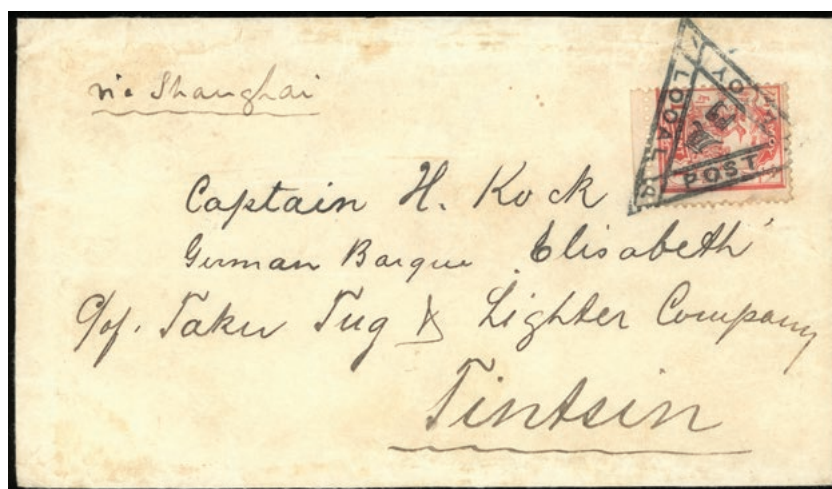 via Shanghai
LOCAL
POST
Captain H. Kock
German Barque Elisabeth
c/of. Taku Tug & Lighter Company
Tintsin